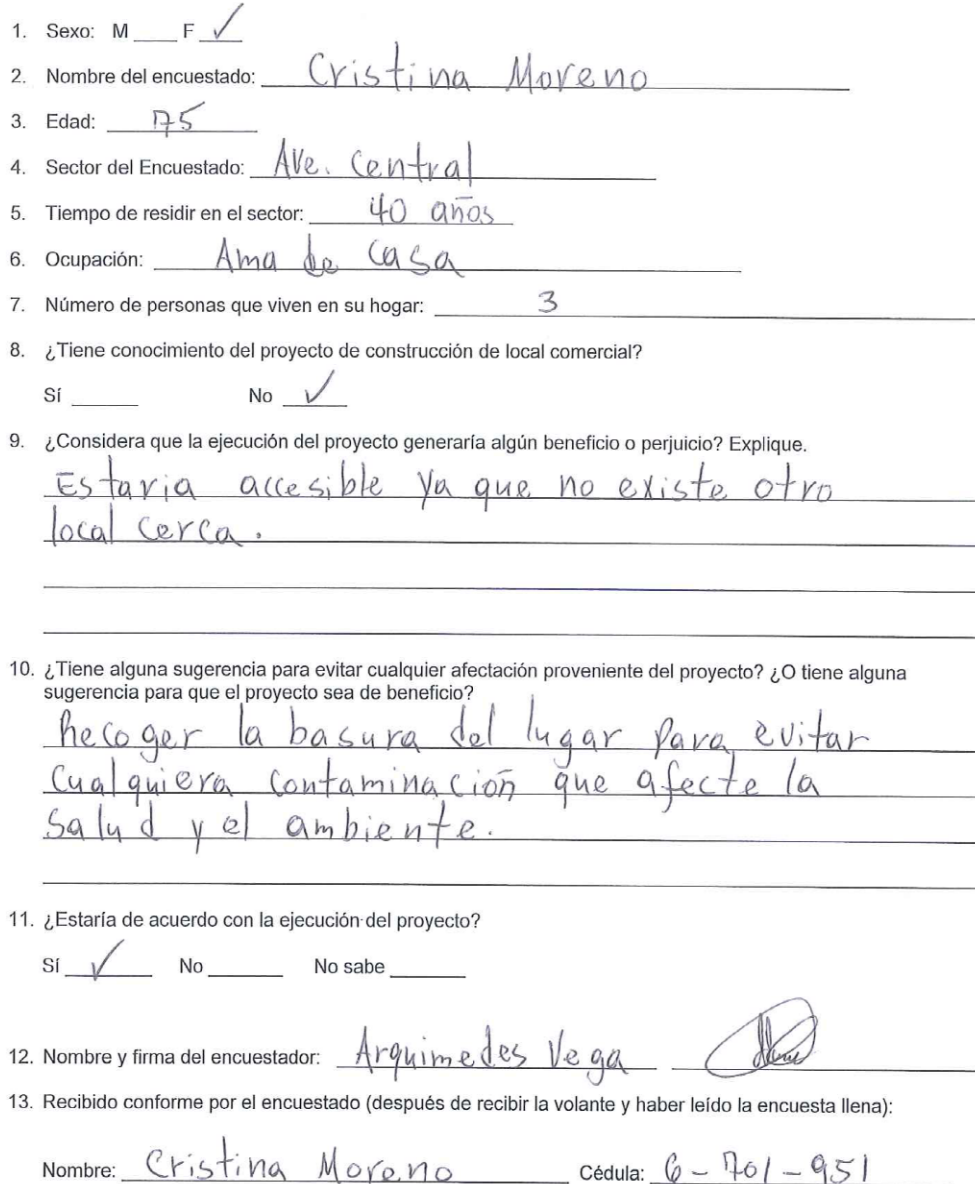 1. Sexo: M ____ F ✓
2. Nombre del encuestado: Cristina Moreno
3. Edad: 75
4. Sector del Encuestado: Ave. Central
5. Tiempo de residir en el sector: 40 años
6. Ocupación: Ama de Casa
7. Número de personas que viven en su hogar: 3
8. ¿Tiene conocimiento del proyecto de construcción de local comercial?
Sí ____ No ✓
9. ¿Considera que la ejecución del proyecto generaría algún beneficio o perjuicio? Explique.
Estaria accesible ya que no existe otro
local cerca.
10. ¿Tiene alguna sugerencia para evitar cualquier afectación proveniente del proyecto? ¿O tiene alguna
sugerencia para que el proyecto sea de beneficio?
Recoger la basura del lugar para evitar
cualquiera contaminación que afecte la
salud y el ambiente.
11. ¿Estaría de acuerdo con la ejecución del proyecto?
Sí ✓ No ____ No sabe ____
12. Nombre y firma del encuestador: Arquimedes Vega
13. Recibido conforme por el encuestado (después de recibir la volante y haber leído la encuesta llena):
Nombre: Cristina Moreno Cédula: 6-701-951